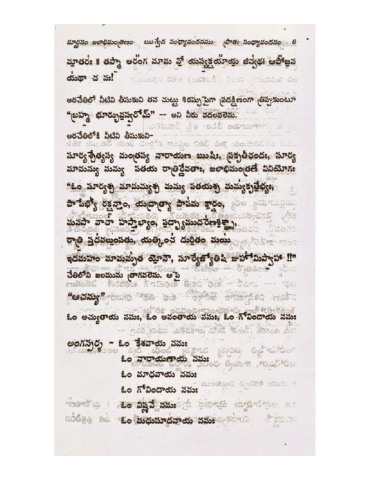 మార్జనం జలాభిమంత్రణం ఋగ్వేద సంధ్యావందనము ప్రాతః సంధ్యావందనం 6
మాతరః ॥ తస్మా అరంగ మామ వో యస్యక్షయాయ జిన్వథః ఆపోజన
యథా చ నః!
అరచేతిలో నీటిని తీసుకుని తన చుట్టు శిరస్సుపైగా ప్రదక్షిణంగా త్రిప్పుకుంటూ
"బ్రహ్మ భూర్భువస్వరోమ్" – అని నీరు వదలవలెను.
అరచేతిలోకి నీటిని తీసుకుని-
సూర్యశ్చేత్యస్య మంత్రస్య నారాయణ ఋషిః, ప్రకృతీఛందః, సూర్య
మామన్యు మన్యు పతయ రాత్రిర్దేవతాః, జలాభిమంత్రణే వినియోగః
"ఓం సూర్యశ్చ మామన్యుశ్చ మన్యు పతయశ్చ మన్యుకృతేభ్యః,
పాపేభ్యో రక్షన్తాం, యద్రాత్ర్యా పాపమ కార్షం,
మనసా వాచా హస్తాభ్యాం, పద్భ్యాముదరేణశిశ్నా,
రాత్రి స్తదవలుంపతు, యత్కించ దురితం మయి
ఇదమహం మామమృత యోనౌ, సూర్యేజ్యోతిషి జుహోమిస్వాహా !!"
చేతిలోని జలమును త్రాగవలెను. ఆపై
"ఆచమ్య"
ఓం అచ్యుతాయ నమః, ఓం అనంతాయ నమః, ఓం గోవిందాయ నమః
అంగన్యర్శ - ఓం కేశవాయ నమః
ఓం నారాయణాయ నమః
ఓం మాధవాయ నమః
ఓం గోవిందాయ నమః
ఓం విష్ణవే నమః
ఓం మధుసూదనాయ నమః